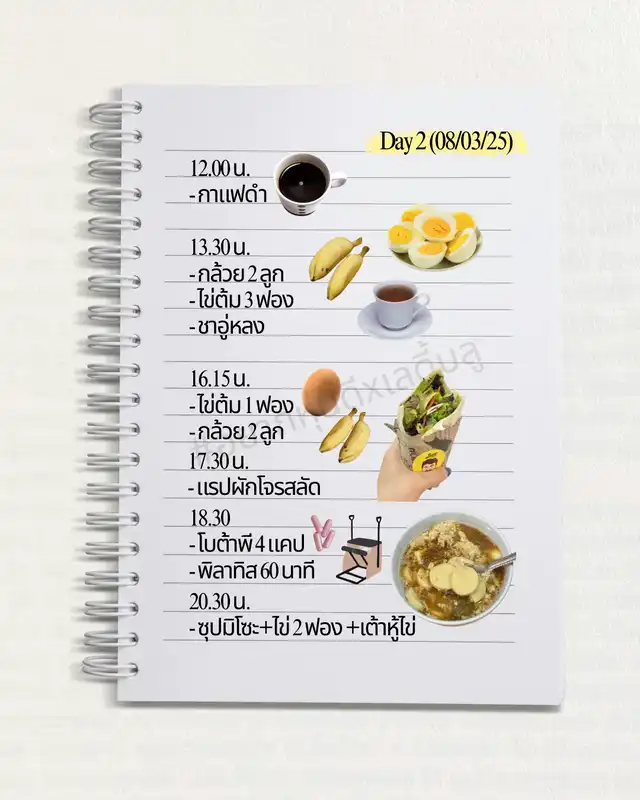 Day 2 (08/03/25)
12.00 น.
- กาแฟดำ
13.30 น.
- กล้วย 2 ลูก
- ไข่ต้ม 3 ฟอง
- ชาอู่หลง
16.15 น.
- ไข่ต้ม 1 ฟอง
- กล้วย 2 ลูก
17.30 น.
- แรปผักโจรสลัด
18.30
- โบต้าพี 4 แคป
- พิลาทิส 60 นาที
20.30 น.
- ซุปมิโซะ+ไข่ 2 ฟอง +เต้าหู้ไข่